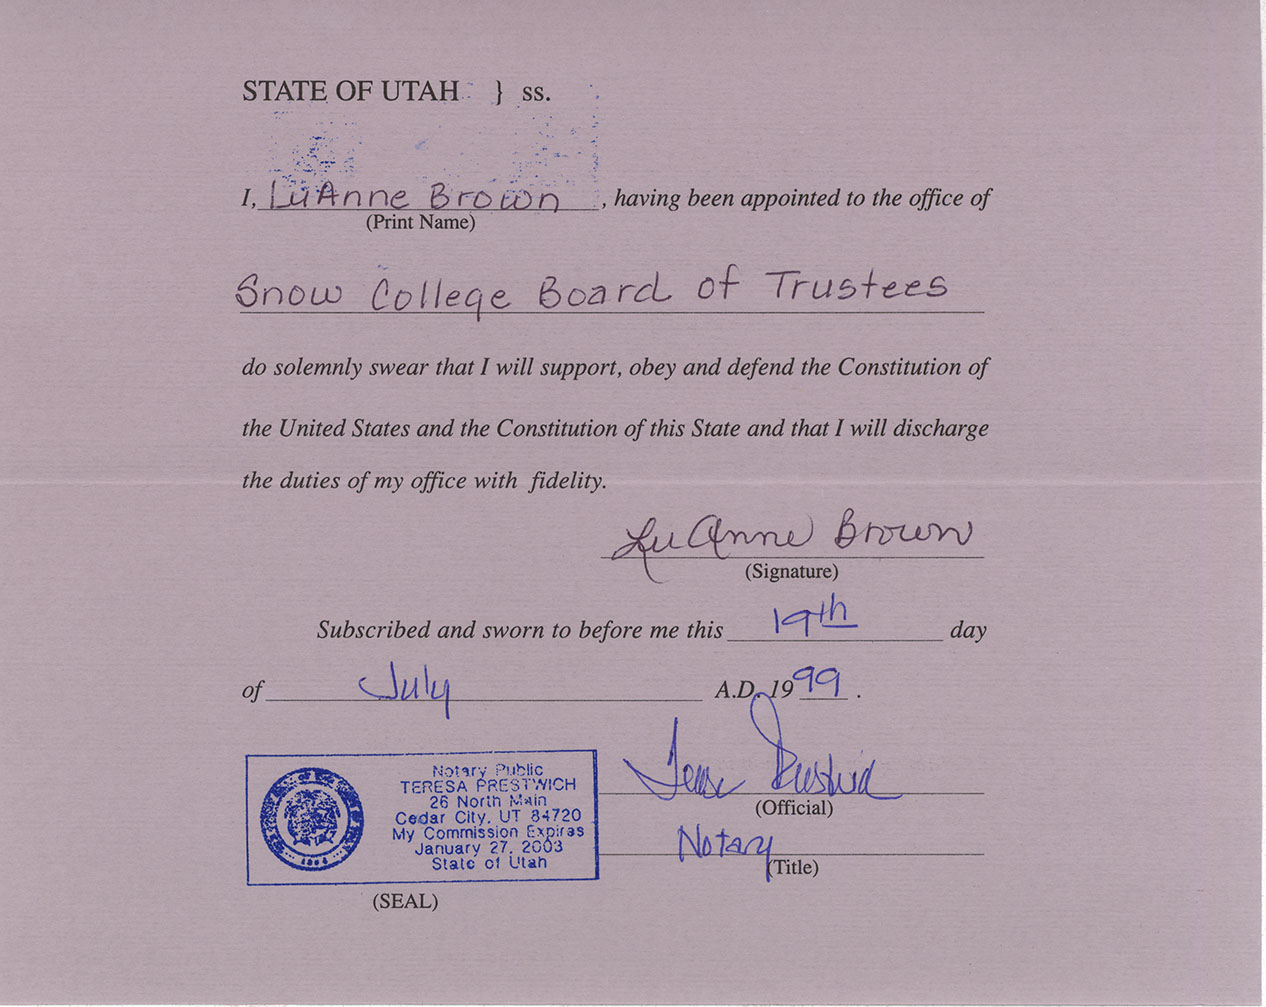 STATE OF UTAH } ss.
I, LuAnne Brown, having been appointed to the office of
(Print Name)
Snow College Board of Trustees
do solemnly swear that I will support, obey and defend the Constitution of
the United States and the Constitution of this State and that I will discharge
the duties of my office with fidelity.
LuAnne Brown
(Signature)
Subscribed and sworn to before me this 19th day
of July A.D. 1999.
Notary Public
TERESA PRESTWICH
26 North Main
Cedar City, UT 84720
My Commission Expires
January 27, 2003
State of Utah
(SEAL)
(Official)
Notary
(Title)